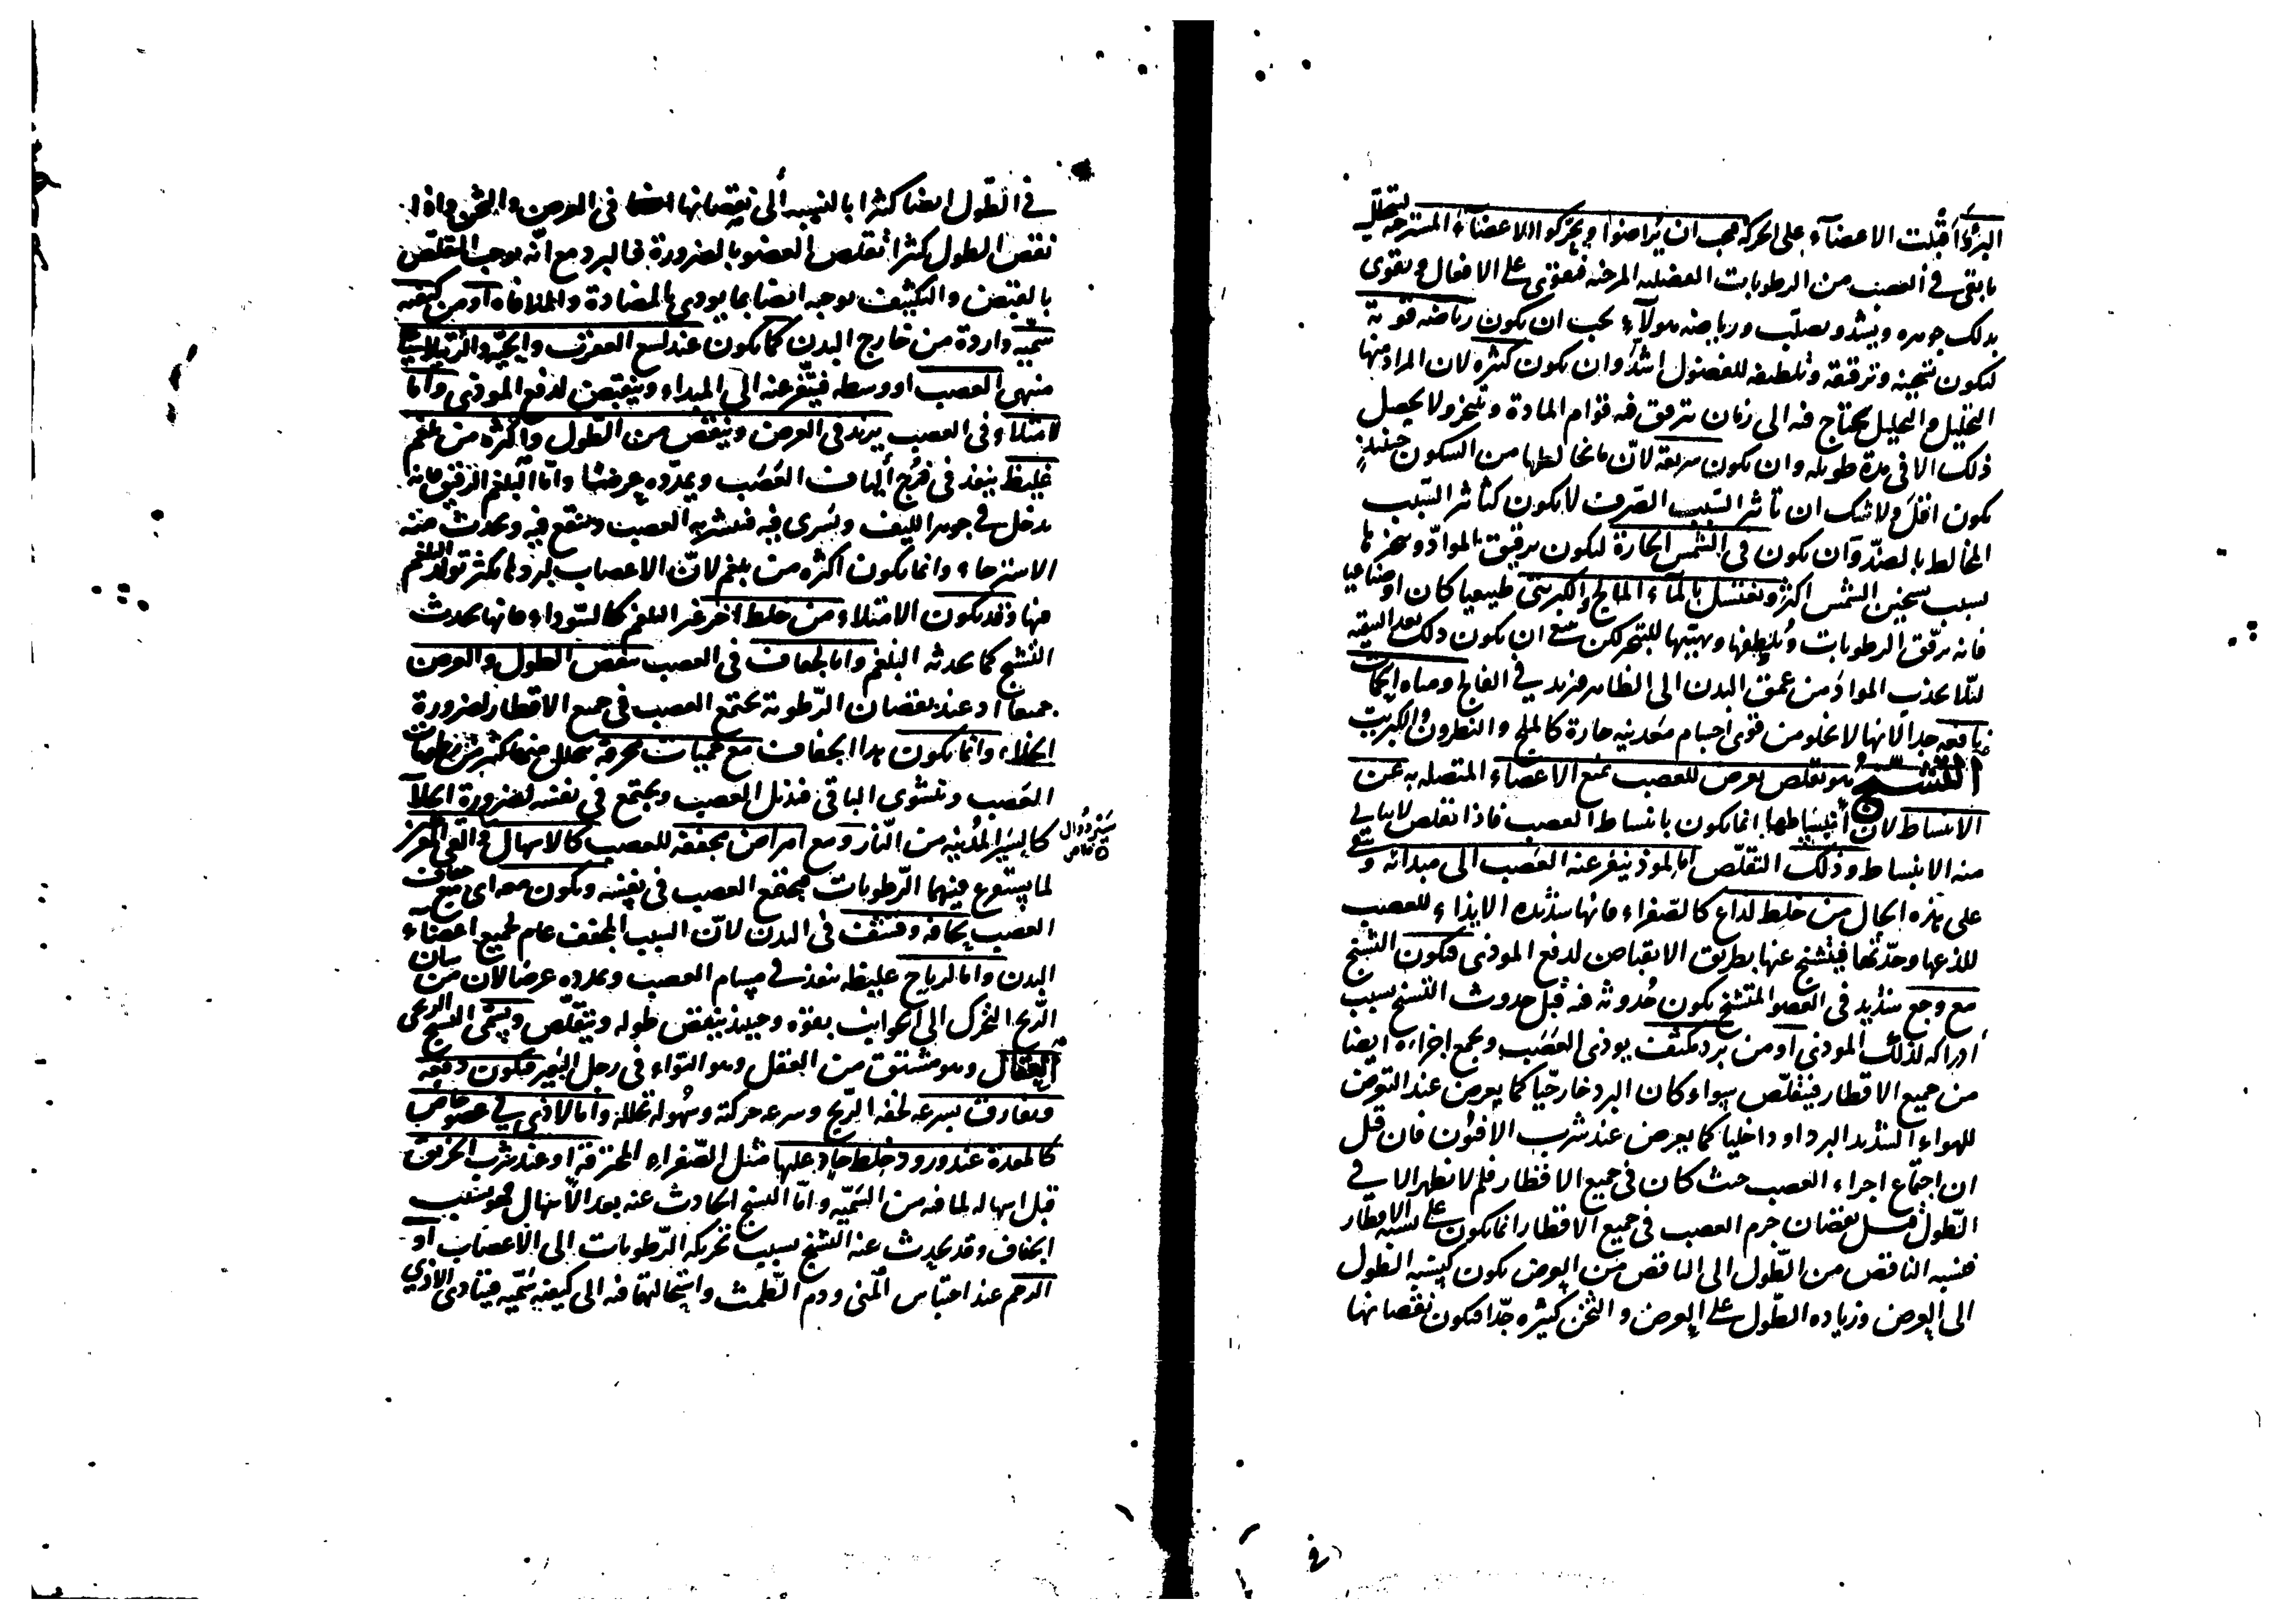 البرؤ اقبلت الاعضآء على الحركة يجب ان يراضوا ويحركوا الاعضآء المسترخية ليتحلل
ما بقى فى العصب من الرطوبات الفضلية المرخية فيقوى على الافعال و يقوى
بذلك جوهره ويشتد ويصلب ورياضة هولآء يجب ان يكون رياضة قوية
ليكون تسخينه وترقيقه وتلطيفه للفضول اشدّ وان يكون كثيره لان المراد منها
التحليل والتحليل يحتاج فيه الى زمان يترقق فيه قوام المادة ويتبخر ولا يحصل
ذلك الا فى مدة طويله وان يكون سريعة لانّ ما يخالطها من السكون حينئذٍ
يكون اقلّ ولا شك ان تأثير السّبب الصّرف لا يكون كتأثير السّبب
المخالط بالضدّ وان يكون فى الشمس الحارة ليكون ترقيق الموادّ وتبخرها
بسبب تسخين الشمس اكثر ويغتسل بالمآء المالح والكبريتى طبيعيا كان او صناعيا
فانه يرقّق الرطوبات ويلطفها ويهيئها للتحلل لكن ينبغى ان يكون ذلك بعد التنقيه
لئلا يجذب المواد من عمق البدن الى الظاهر فيزيد فى الفالج ومياه الحمات
نافعه جدا لانها لا يخلو من قوى اجسام معدنيه حارة كالملح والنطرون والكبريت
التشنج هو تقلص يعرض للعصب يمنع الاعضاء المتصله به عن
الانبساط لان انبساطها انما يكون بانبساط العصب فاذا تقلص لا يتأتى
منه الانبساط وذلك التقلّص اما لموذ ينفر عنه العصب الى مبدائه و يبقى
على هذه الحال من خلط لذاع كالصفراء فانها شديدة الايذاء للعصب
للذعها وحدّتها فيتشنج عنها بطريق الانقباض لدفع الموذى فيكون التشنج
مع وجع شديد فى العضو المتشنج يكون حُدوثه فيه قبل حدوث التشنج بسبب
ادراكه لذلك الموذى او من برد مكثف يوذى العصَب ويجمع اجزاءه ايضا
من جميع الاقطار فيتقلّص سواء كان البرد خارجيّا كما يعرض عند التعرض
للهواء الشديد البرد او داخليا كما يعرض عند شرب الافيون فان قيل
ان اجتماع اجزاء العصب حيث كان فى جميع الاقطار فلم لا يظهر الا فى
الطّول قيل نقصان جرم العصب فى جميع الاقطار انما يكون على نسبة الاقطار
فنسبه الناقص من الطّول الى الناقص من العرض يكون كنسبه الطول
الى العرض وزياده الطّول على العرض والثخن كثيره جدّا فيكون نقصانها
فى الطّول ايضا كثيرا بالنسبه الى نقصانها فى العرض والثخن واذا
نقص الطول كثيرا تقلص العضو بالضرورة فالبرد مع انّه يوجب التقلص
بالقبض والتكثيف يوجبه ايضا بما يوذى بالمضادة والمنافاه او من كيفيه
سمّيه واردة من خارج البدن كما يكون عند لسع العقرب والحيّه والرتيلا
منهى العصب او وسطه فينفر عنه الى المبداء وينقبض لدفع الموذى واما
لامتلاء فى العصب يزيد فى العرض وينقص من الطول واكثره من بلغم
غليظ ينفذ فى فرج ألياف العَصَب ويمدّده عرضا وامّا البلغم الرقيق فانه
يدخل فى جوهر الليف ويسرى فيه فيتشربه العصب وينتقع فيه ويحدث منه
الاسترخاء وانما يكون اكثره من بلغم لانّ الاعصاب لبردها يكثر تولد البلغم
فيها وقد يكون الامتلاء من خلط اخر غير البلغم كالسّوداء فانها يحدث
التشنج كما يحدثه البلغم واما لجفاف فى العصب ينقص الطول والعرض
جميعا اذ عند نقصان الرّطوبة يجتمع العصب فى جميع الاقطار لضرورة
الخلاء وانما يكون هذا الجفاف مع حميات محرقة يتحلل منها كثير من رطوبات
العصب وينشوى الباقى فيذبل العصب ويجتمع فى نفسه لضرورة الخلآ
كالسير المدنيه من النّار ومع امراض مجففه للعصب كالاسهال والقى المفرز
سير دوال
لما يستفرغ فيهما الرّطوبات فيجتمع العصب فى نفسه ويكون معه اى مع جفاف
العصب نحافه وقشف فى البدن لانّ السبب المجفف عام لجميع اعضاء
البدن واما لرياح غليظه ينفذ فى مسام العصب ويمدده عرضا لان من شان
الرّيح التحرك الى الجوانب بقوّه وحينئذ ينقص طوله ويتقلّص ويسمّى التشنج الريحى
العقال وهو مشتق من العقل وهو التواء فى رجل البعير فيكون دفعه
ويفارق بسرعه لخفه الرّيح وسرعه حركة وسُهوله تحلله واما لاذى فى عضو خاص
كالمعدة عند ورود خلط حادٍ عليها مثل الصّفراء المحترقة او عند شرب الخربق
قبل اسهاله لما فيه من السّميّه وامّا التشنج الحادث عنه بعد الاسهال فهو بسبب
الجفاف وقد يحدث عنه التشنج بسبب تحريكه الرّطوبات الى الاعصاب او
الرحم عند احتباس المنى ودم الطّمث واستحالتهما فيه الى كيفيه سُمّيه فيتادى الاذى